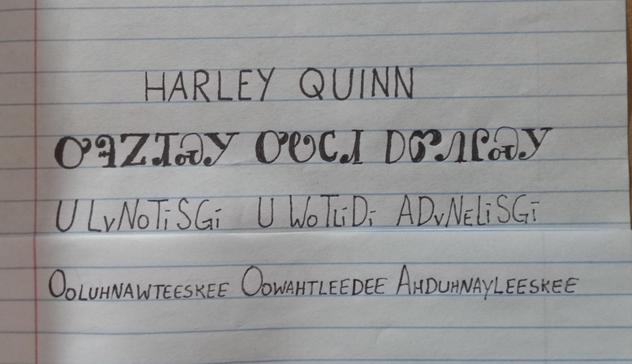 HARLEY QUINN
ᎤᎸᏃᏘᏍᎩ ᎤᏬᏟᏗ ᎠᏛᏁᎵᏍᎩ
U LvNoTiSGi U WoTLiDi ADvNeLiSGi
OOLUHNAWTEESKEE OOWAHTLEEDEE AHDUHNAYLEESKEE